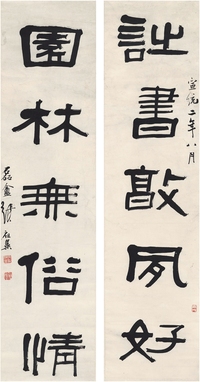 詩書敦夙好
宣統二年八月
園林無俗情
磊盦張祖翼